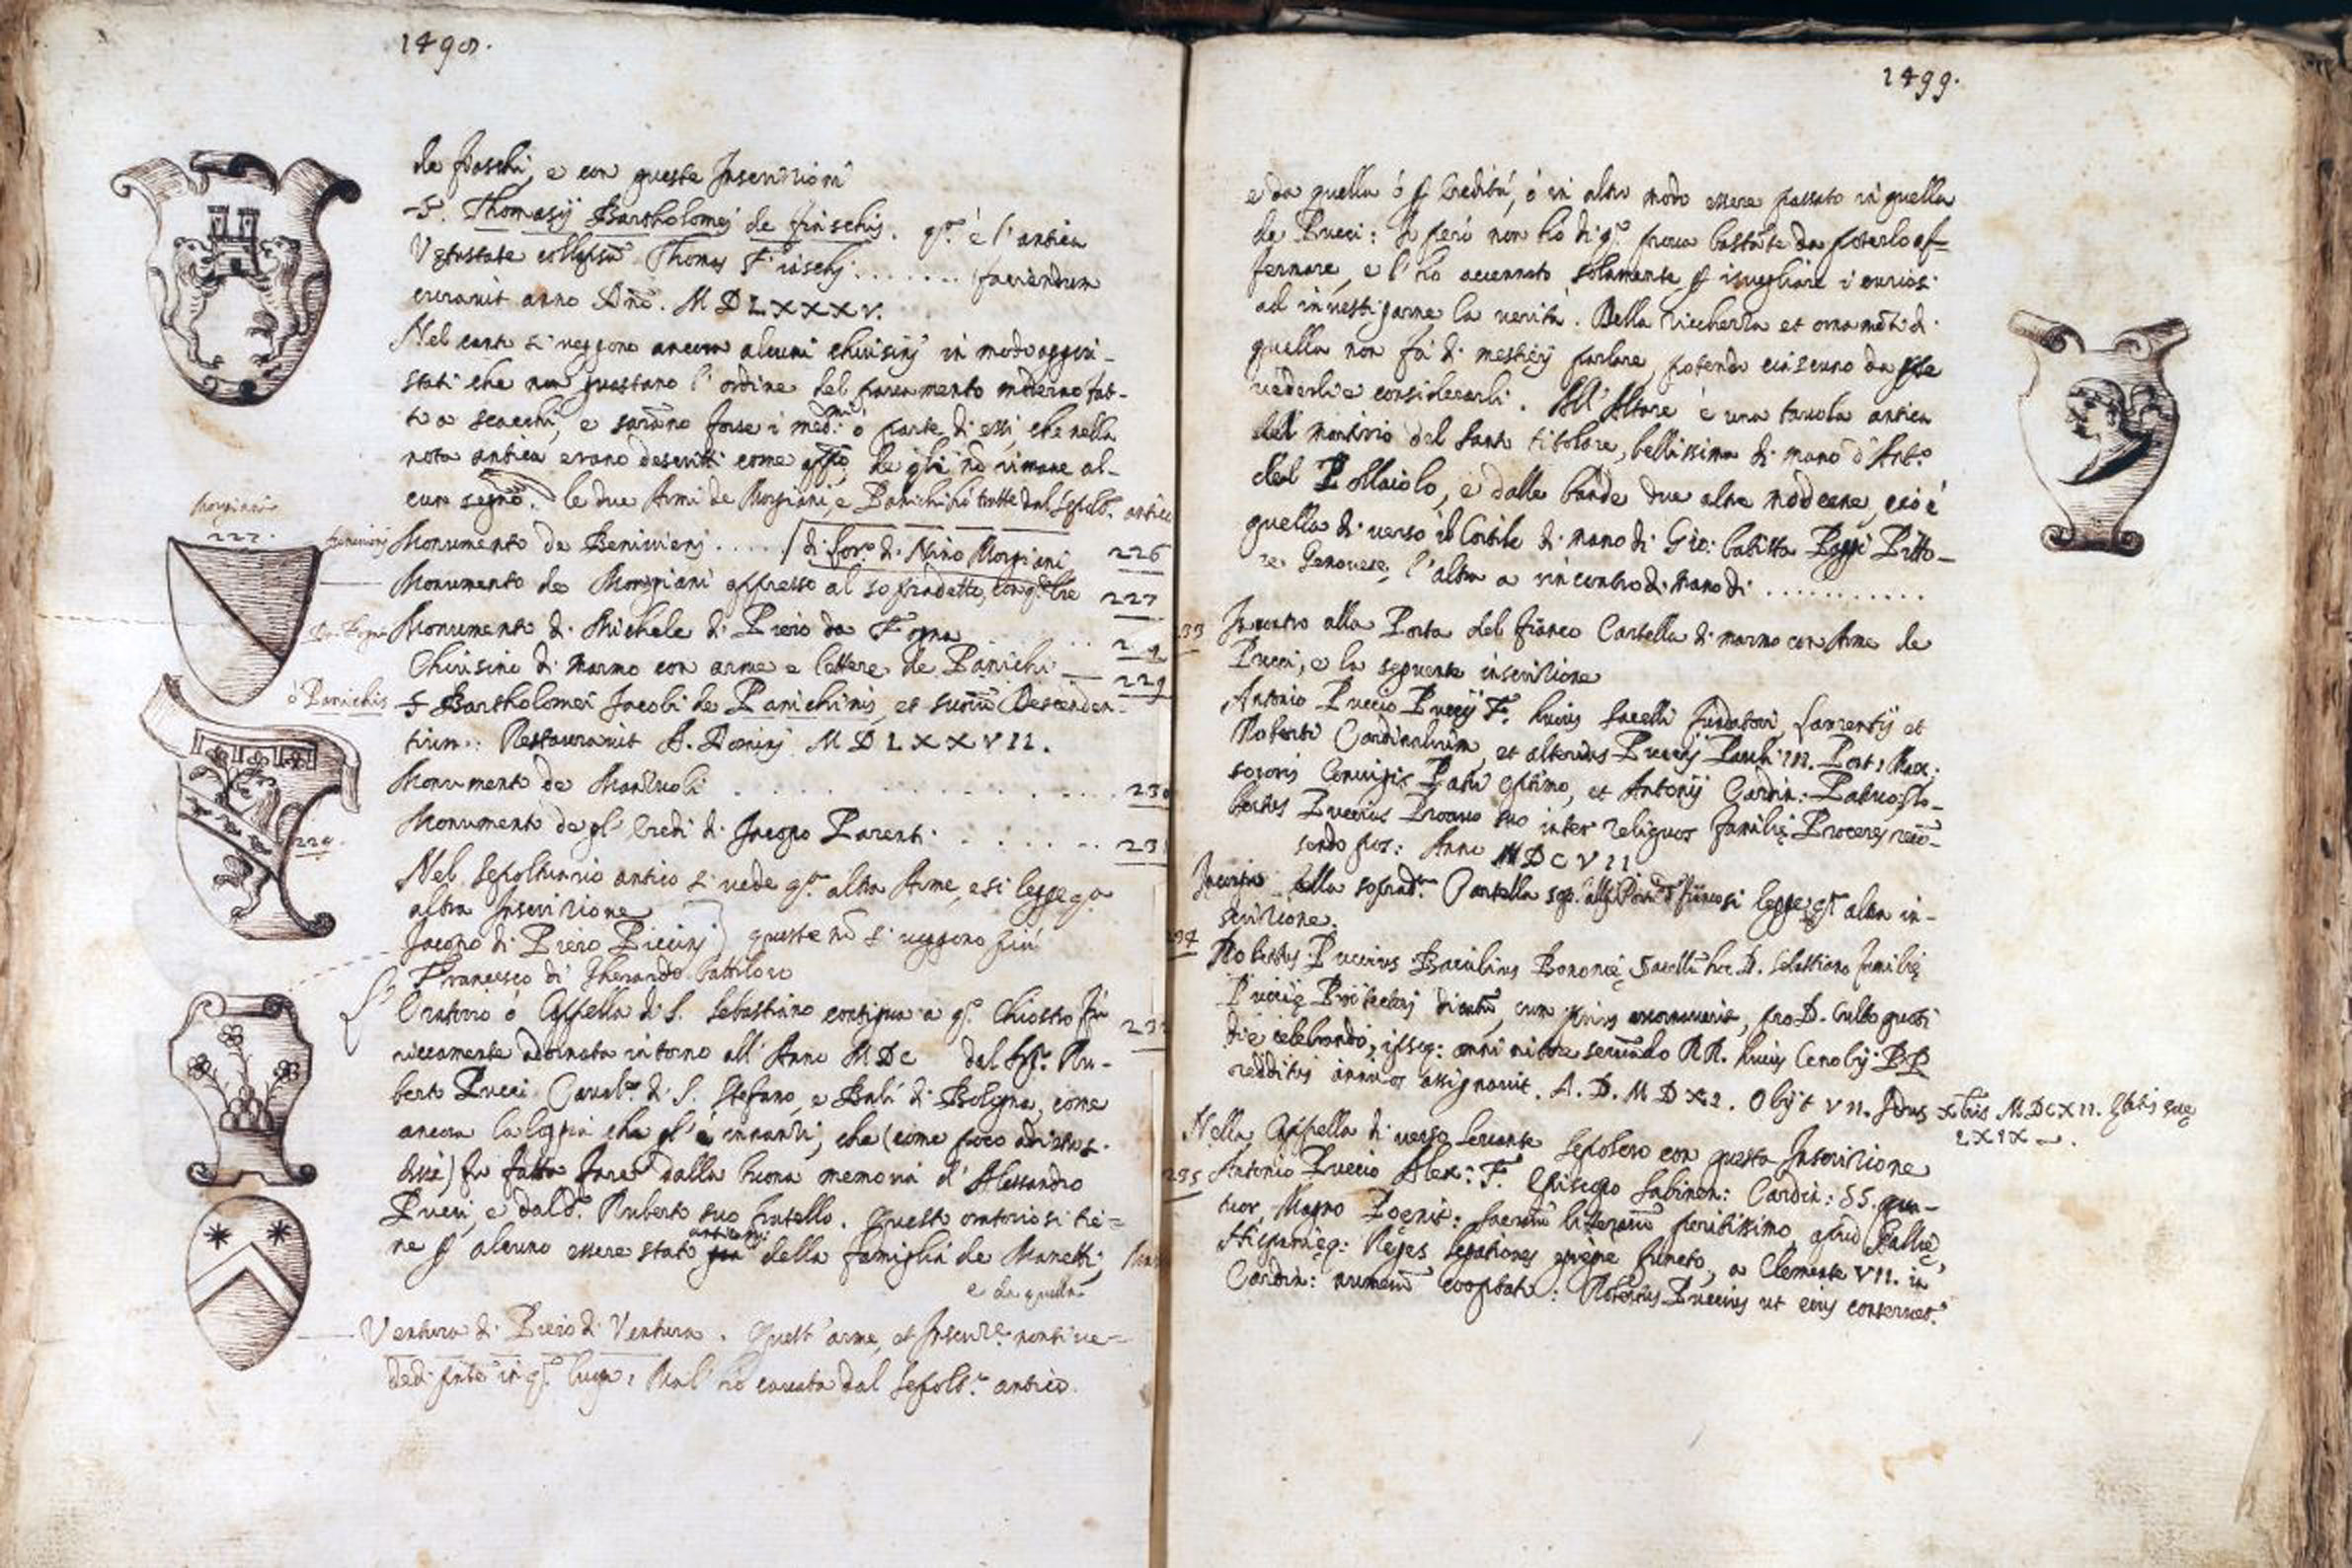 1498.
de fiaschi, e con queste Inscrizioni
S. Thomasij Bartholomej de fiaschis. q.ta è l'antica
Vetustate collapsũ Thomas Fiaschj ........ faciendum
curauit anno Dñe. M D L X X X V.
Nel canto si ueggono ancora alcuni chiusinj in modo aggiu-
stati che non guastano l'ordine del pauimento moderno fat-
to a scacchi, e sarãno forse i med.mi ò parte di essi, che nella
nota antica erano descritti come app.o, de q̃li nõ rimane al-
cun segno. le due Armi de Morgiani, e Panichi hò tratte dal Sepolt. antico
Morgiani
227.
Monumento de Beniuienj ..... di for. di Nino Morgiani 226
Monumento de Morgiani appresso al sopradetto, con q.te lre 227
Monumento di Michele di Piero da Fogna ..
Chiusino di marmo con arme e lettere de Panichi 229
ò Panichis S Bartholomei Jacobi de Panichinis, et suorũ Descenden-
tium: Restaurauit A. Dominj M D L X X V I I.
Monumento de Manouoli . . . . . . . . . . 230
229.
Monumento degl' Eredi di Jacopo Parenti . . . . . 23
Nel sepoltuario antico si uede q.ta altra Arme, e si legge q.a
altra Inscrizione
Jacopo di Piero Piccinj } queste nõ si ueggono più
Francesco di Gherardo battiloro
Oratorio ò Cappella di S. Sebastiano contigua a q.o Chiostro fù 23
riccamente adornata intorno all' Anno M D C dal Sig.r Ru-
berto Pucci Caual.re di S. Stefano, e Balì di Bologna, come
ancora la loggia che gl' è innanzi, che (come poco adietro
dissi) fu fatta fare dalla buona memoria d' Alessandro
Pucci, e dal d.o Ruberto suo fratello. Questo oratorio si tie-
ne p alcuno essere stato anticam: della famiglia de Manetti,
e da quella
Ventura di Piero di Ventura. Quest' arme, et Inscriz.e non si ue-
de di pñte in q.o luogo, Ma l' hò cauata dal Sepolt.o antico.
1499.
e da quella ò p eredità, ò in altro modo essere passato in quella
de Pucci: Io però non hò di q.o proua bastãte da poterlo af-
fermare, e l'hò accennato solamente p isuegliare i curiosi
ad inuestigarne la uerità. Della ricchezza et ornamẽti di
quella non fà di mestierj parlare, potendo ciascuno da se
uederli e considerarli. All' Altare è una tauola antica
del martirio del santo titolare, bellissima di mano d' Ant.o
del Pollaiolo, e dalle bande due altre moderne, cioè
quella di uerso il Cortile di mano di Gio: batista Paggi Pitto-
re Genouese, l'altra a rincontro di mano di ...........
233 Incontro alla Porta del fianco Cartella di marmo con Arme de
Pucci, e la seguente inscrizione
Antonio Puccio Puccij F. huius sacelli fundatori, Laurentij et
Roberti Cardinalium, et alterius Puccij Pauli III. Pont: Max:
sororis Coniugis Patri optimo, et Antonij Cardin: Patruo, Ro-
bertus Puccius Proauo suo inter reliquos familię Proceres
pos: Anno M D C V I I
Incontro alla soprad.ta Cartella sop. alla Porta d. fianco si legge q.ta altra in-
scrizione.
234 Robertus Puccius Baiulius Bononię Sacellũ hoc D. Sebastiano familię
Puccię Protectorj dicatũ, cum prius exornauerit, pro D. Cultu quoti
die celebrando, ipseq: anni RR. huius Cenobij PP
redditus annuos assignauit. A. D. M D X I. Obijt VII. Idus Xbris MDCXII. Ętatis suę
LXIX.
Nella Cappella di uerso Leuante Sepolcro con questa Inscrizione
235 Antonio Puccio Alex: F. Episcopo Sabinen: Cardin: SS. qua-
tuor, Magno Poenit: sacrarũ litterarũ peritissimo, apud Gallię,
Hispanięq: Reges legationes egregie functo, a Clemente VII. in
Cardin: numerũ cooptato: Robertus Puccius ut eius